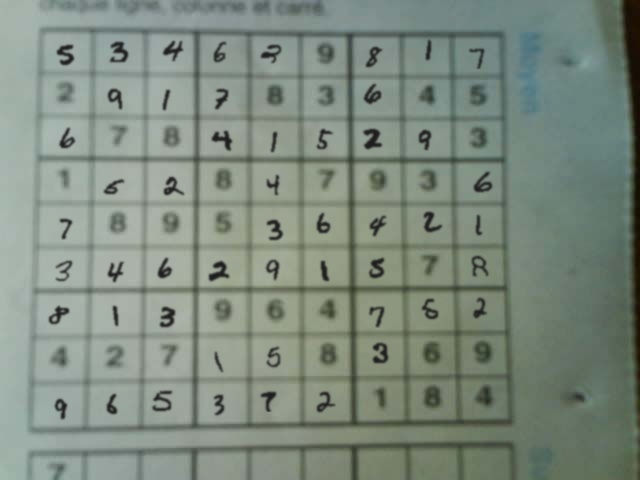 chaque ligne, colonne et carré.
5 3 4 6 2 9 8 1 7
2 9 1 7 8 3 6 4 5
6 7 8 4 1 5 2 9 3
1 5 2 8 4 7 9 3 6
7 8 9 5 3 6 4 2 1
3 4 6 2 9 1 5 7 8
8 1 3 9 6 4 7 5 2
4 2 7 1 5 8 3 6 9
9 6 5 3 7 2 1 8 4
7
Moyen